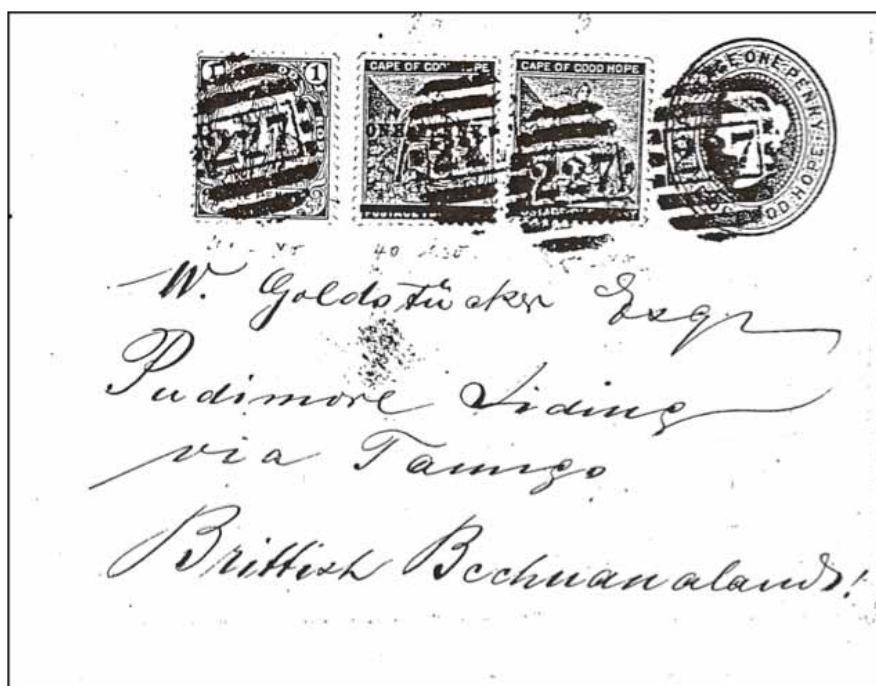 1 1
CAPE OF GOOD HOPE CAPE OF GOOD HOPE
ONE PENNY
GOOD HOPE
W. Goldstücker Esqr
Pudimore Siding
via Taungs
Brittish Bechuanaland!